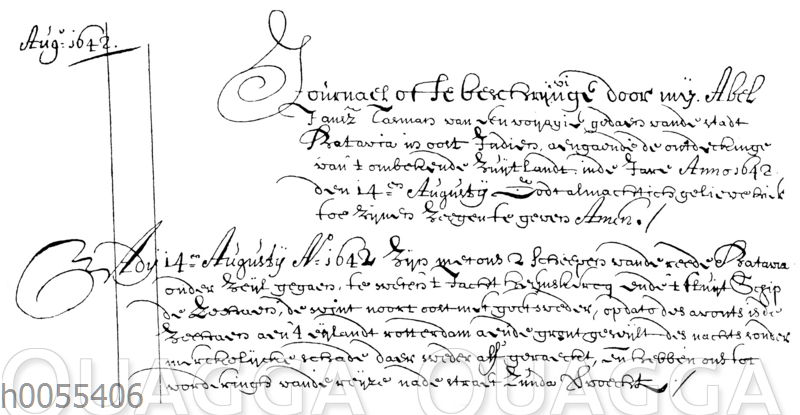 Augu: 1642.
Journael ofte beschrijvinge door mij Abel
Jansz Tasman van een voyagie, gedaen vande stadt
Batavia in oost Indien, aengaende de ontdeckinge
van 't onbekende Zuijtlandt. inde Jare Anno 1642.
den 14en Augustij Godt almachtich gelieve hier
toe zijnen zeegen te geven Amen. /
Ady 14en Augustij Ao 1642 Zijn met ons 2 Scheepen vande reede Batavia
onder Zeijl gegaen, te weten 't Jacht Heemskercq ende 't fluijt Schip
de Zeehaen, de wint noort oost met goet weder, op dato des avonts is de
Zeehaen aen 't eijlandt rotterdam aende gront geweest des nachts sonder
merckelijcke schade daer weder aff geraeckt, en hebben ons tot
vorderingh vande reijze na de straet Zunda
QUAGGA QUAGGA QUAGGA
h0055406